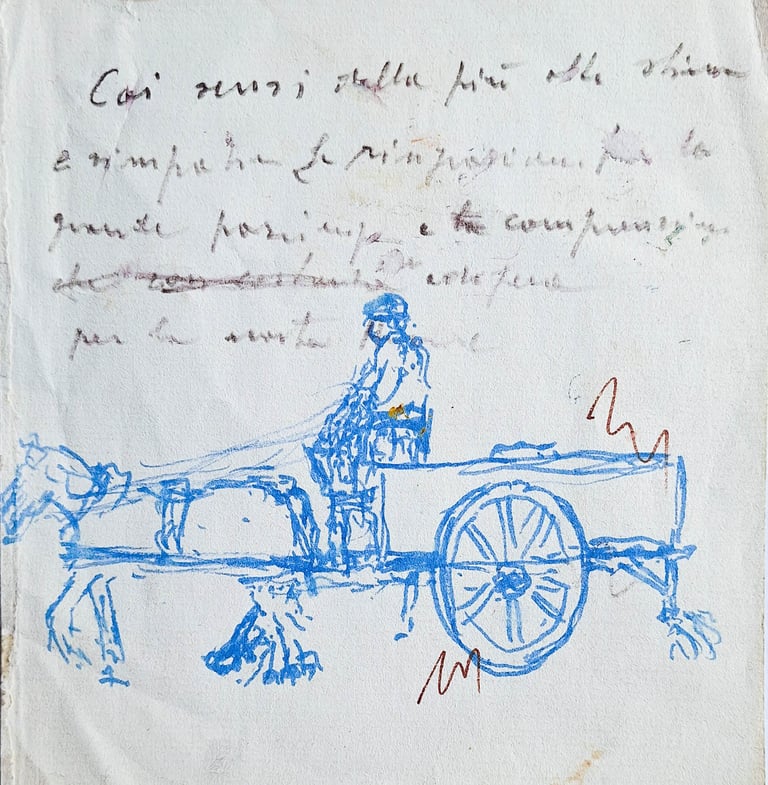 Coi sensi della più alta stima
e simpatia La ringraziamo per la
grande pazienza e la comprensione
che con
per la nostra